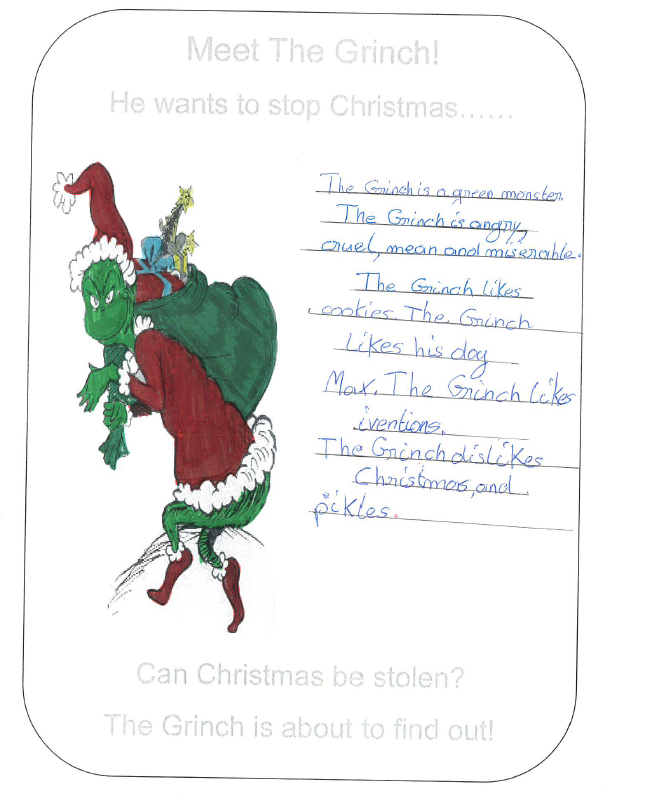 Meet The Grinch!
He wants to stop Christmas......
The Grinch is a green monster.
The Grinch is angry,
cruel, mean and miserable.
The Grinch likes
cookies. The Grinch
Likes his dog
Max. The Grinch likes
iventions.
The Grinch dislikes
Christmas, and
pickles.
Can Christmas be stolen?
The Grinch is about to find out!